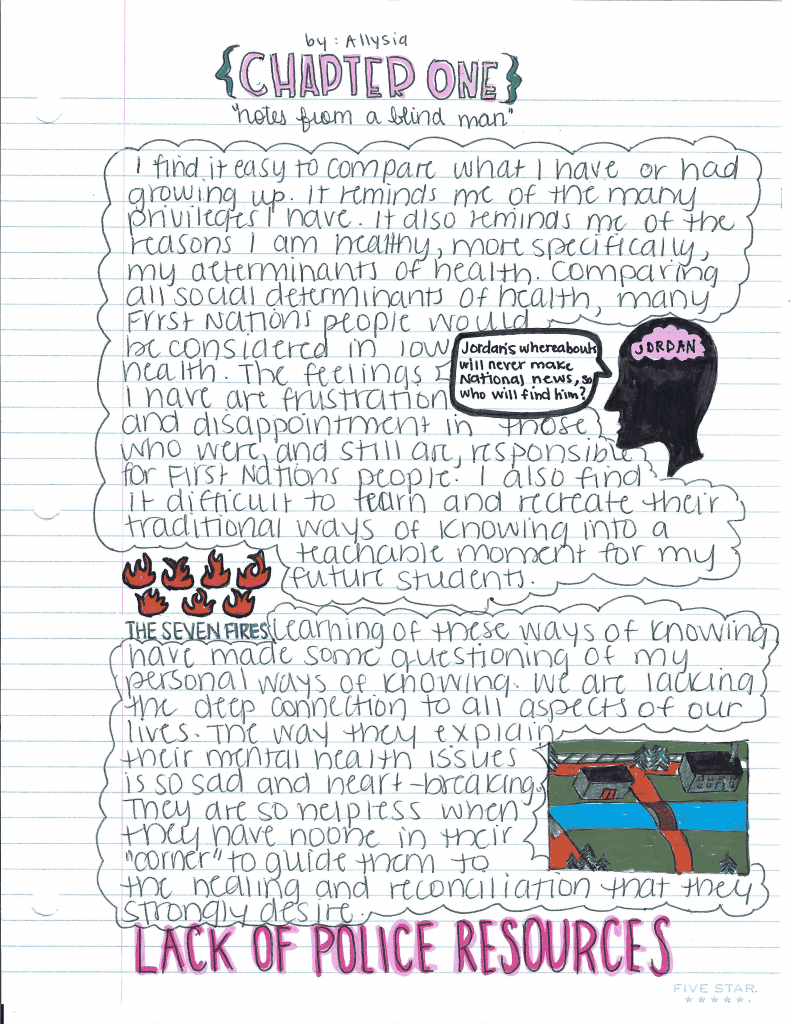 by: Allysia
{CHAPTER ONE}
"notes from a blind man"
I find it easy to compare what I have or had
growing up. It reminds me of the many
privileges I have. It also reminds me of the
reasons I am healthy, more specifically,
my determinants of health. Comparing
all social determinants of health, many
First Nations people would
be considered in low
health. The feelings
I have are frustration
and disappointment in those
who were, and still are, responsible
for First Nations people. I also find
it difficult to learn and recreate their
traditional ways of knowing into a
teachable moment for my
future students.
Jordan's whereabouts
will never make
National news, so
who will find him?
JORDAN
THE SEVEN FIRES
Learning of these ways of knowing
have made some questioning of my
personal ways of knowing. We are lacking
the deep connection to all aspects of our
lives. The way they explain
their mental health issues
is so sad and heart-breaking.
They are so helpless when
they have noone in their
"corner" to guide them to
the healing and reconciliation that they
strongly desire.
LACK OF POLICE RESOURCES
FIVE STAR.